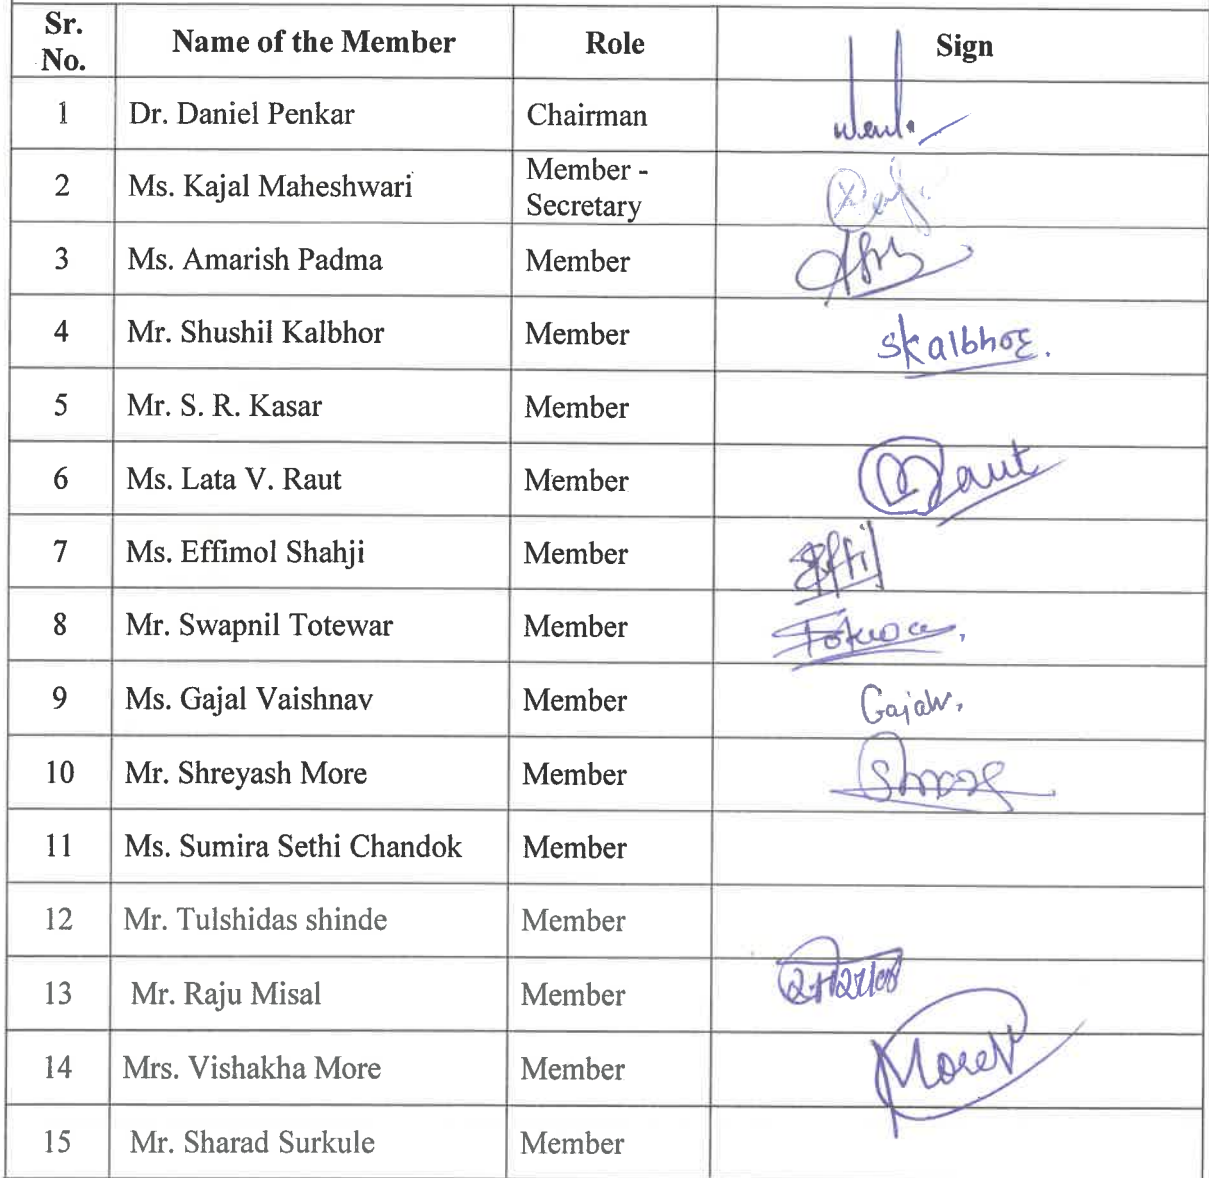 Sr. No. Name of the Member Role Sign
1 Dr. Daniel Penkar Chairman
2 Ms. Kajal Maheshwari Member - Secretary
3 Ms. Amarish Padma Member
4 Mr. Shushil Kalbhor Member Skalbhor.
5 Mr. S. R. Kasar Member
6 Ms. Lata V. Raut Member Raut
7 Ms. Effimol Shahji Member Effi
8 Mr. Swapnil Totewar Member
9 Ms. Gajal Vaishnav Member
10 Mr. Shreyash More Member
11 Ms. Sumira Sethi Chandok Member
12 Mr. Tulshidas shinde Member
13 Mr. Raju Misal Member
14 Mrs. Vishakha More Member
15 Mr. Sharad Surkule Member